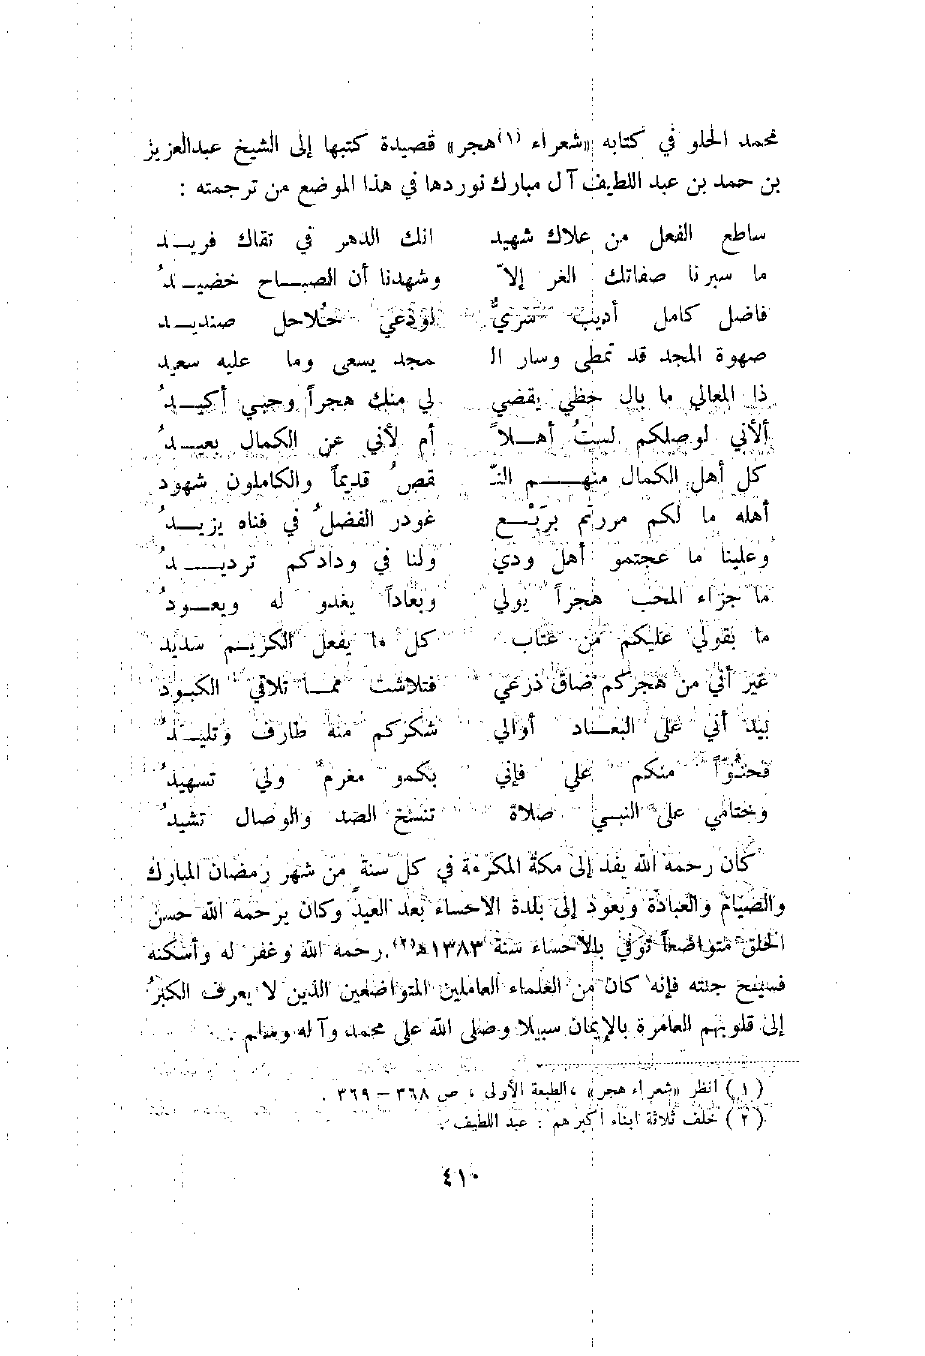 محمد الحلو في كتابه «شعراء (١) هجر» قصيدة كتبها إلى الشيخ عبدالعزيز
بن حمد بن عبد اللطيف آل مبارك نوردها في هذا الموضع من ترجمته :
ساطع الفعل من علاك شهيد انك الدهر في تقاك فريـــد
ما سبرنا صفاتك الغر إلاّ وشهدنا أن الصبـــاح خضيـــدُ
فاضل كامل أديب سريٌّ لوذعي حُلاحل صنديـــد
صهوة المجد قد تمطى وسار الـ مجد يسعى وما عليه سعيد
ذا المعالي ما بال حظي يقضي لي منك هجراً وحبي أكيـــدُ
ألأني لوصلكم لستُ أهـــلاً أم لأني عن الكمال بعيـــدُ
كل أهل الكمال منهـــم النـّ قصُ قديماً والكاملون شهود
أهله ما لكم مررتم برَبْـــع غودر الفضلُ في فناه يزيـــدُ
وعلينا ما عجتمو أهل ودي ولنا في ودادكم ترديـــدُ
ما جزاء المحب هجراً يولي وبعاداً يغدو له ويعـــودُ
ما بقولي عليكم من عتاب كل ما يفعل الكريـــم سديد
غير أني من هجركم ضاق ذرعي فتلاشت ممـــا تلاقي الكبود
بيد أني على البعـــاد أوالي شكركم منه طارف وتليـــدُ
فحنُوّاً منكم علي فإني بكمو مغرم ولي تسهيدُ
وختامي على النبـــي صلاة تنسخ الصد والوصال تشيدُ
كان رحمه الله يفد إلى مكة المكرمة في كل سنة من شهر رمضان المبارك
والصيام والعبادة ويعود إلى بلدة الاحساء بعد العيد وكان يرحمه الله حسن
الخلق متواضعاً توفي بالأحساء سنة ١٣٨٣هـ(٢). رحمه الله وغفر له وأسكنه
فسيفح جنته فإنه كان من العلماء العاملين المتواضعين الذين لا يعرف الكبرُ
إلى قلوبهم العامرة بالإيمان سبيلا وصلى الله على محمد وآله وسلم .
(١) انظر «شعراء هجر» ، الطبعة الأولى ، ص ٣٦٨ – ٣٦٩ .
(٢) خلف ثلاثة ابناء أكبرهم : عبد اللطيف .
٤١٠